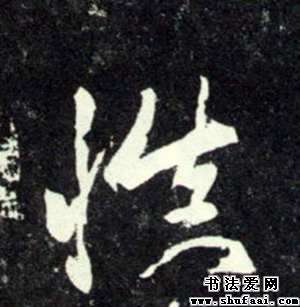 慎
书法爱网
www.shufaai.com